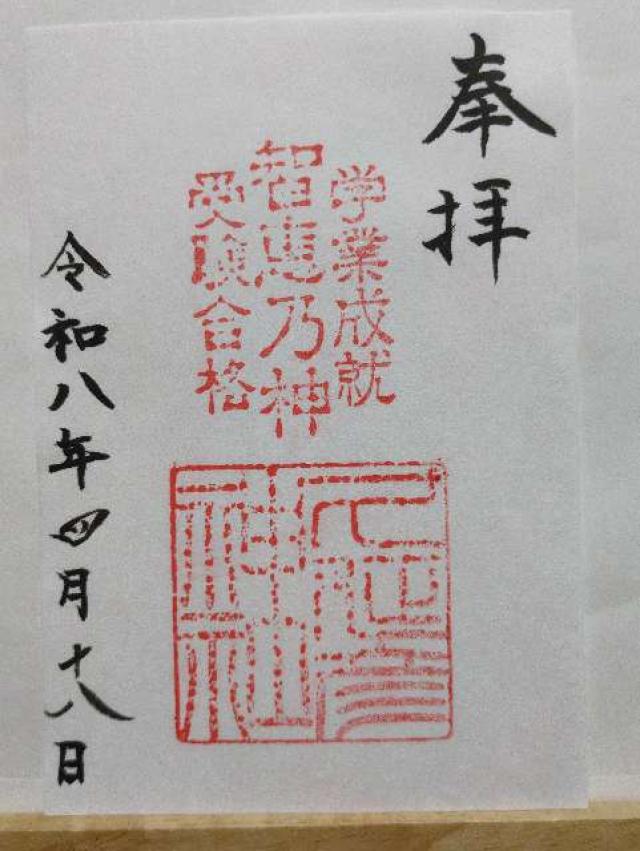 奉拝
学業成就
智恵乃神
受験合格
久延彦
神社
令和八年四月十八日